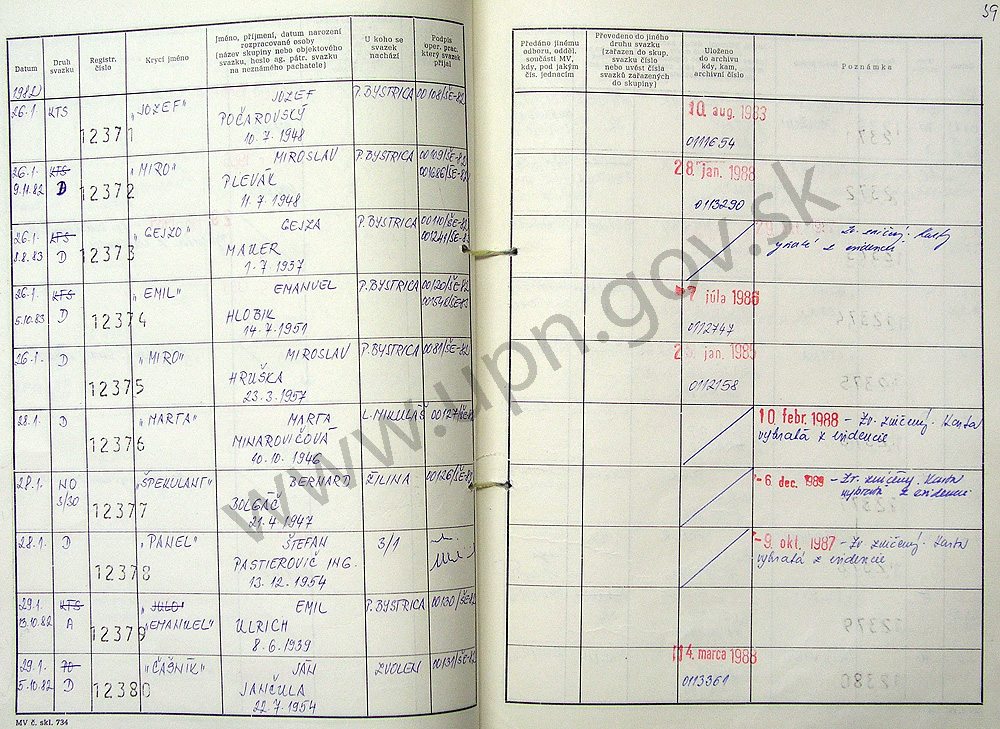 39
Datum
Druh svazku
Registr. číslo
Krycí jméno
Jméno, příjmení, datum narození
rozpracované osoby
(název skupiny nebo objektového
svazku, heslo ag. pátr. svazku
na neznámého pachatele)
U koho se
svazek
nachází
Podpis
oper. prac.
který svazek
přijal
Předáno jinému
odboru, odděl.
součásti MV,
kdy, pod jakým
čís. jednacím
Převedeno do jiného
druhu svazku
(zařazen do skup.
svazku číslo
nebo uvést čísla
svazků zařazených
do skupiny)
Uloženo
do archivu
kdy, kam,
archivní číslo
Poznámka
1982
26.1. KTS 12371 „JOZEF" JOZEF P. BYSTRICA 00108/ŠE-82 10. aug. 1983
POČAROVSKÝ
10.7.1948 0111654
26.1. KTS 12372 „MIRO" MIROSLAV P. BYSTRICA 00109/ŠE-82 28. jan. 1988
9.11.82 D PLEVÁK 001686/ŠE-82
11.7.1948 0113290
26.1. KTS 12373 „GEJZO" GEJZA P. BYSTRICA 00110/ŠE-82 Zv. zničený. Karty
8.8.83 D MAUER 001241/ŠE-83 vyňaté z evidencie
1.7.1937
26.1. KTS 12374 „EMIL" EMANUEL P. BYSTRICA 00120/ŠE-82 7 júla 1986
5.10.83 D HLOBIK
14.7.1951 0112747
26.1. D 12375 „MIRO" MIROSLAV P. BYSTRICA 0081/ŠE-82 jan. 1985
HRUŠKA
23.3.1957 0112158
28.1. D 12376 „MARTA" MARTA L. MIKULÁŠ 00127/ŠE-82 10. febr. 1988 – Zv. zničený. Karta
MINAROVIČOVÁ vybratá z evidencie
10.10.1946
28.1. NO 12377 „ŠPEKULANT" BERNARD ŽILINA 00126/ŠE-82 - 6. dec. 1989 – Zv. zničený. Karta
3/30 BOLGÁČ vybratá z evidencie
21.4.1947
28.1. D 12378 „PANEL" ŠTEFAN 3/1 - 9. okt. 1987 – Zv. zničený. Karta
PASTIEROVIČ ING. vybratá z evidencie
13.12.1954
29.1. KTS 12379 „JULO" EMIL P. BYSTRICA 00130/ŠE-82
13.10.82 A „EMANUEL" ULRICH
8.6.1939
29.1. 12380 „ČAŠNÍK" JÁN ZVOLEN 00131/ŠE-82 14. marca 1988
5.10.82 D JANČULA
22.7.1954 0113361
MV č. skl. 734
www.upn.gov.sk